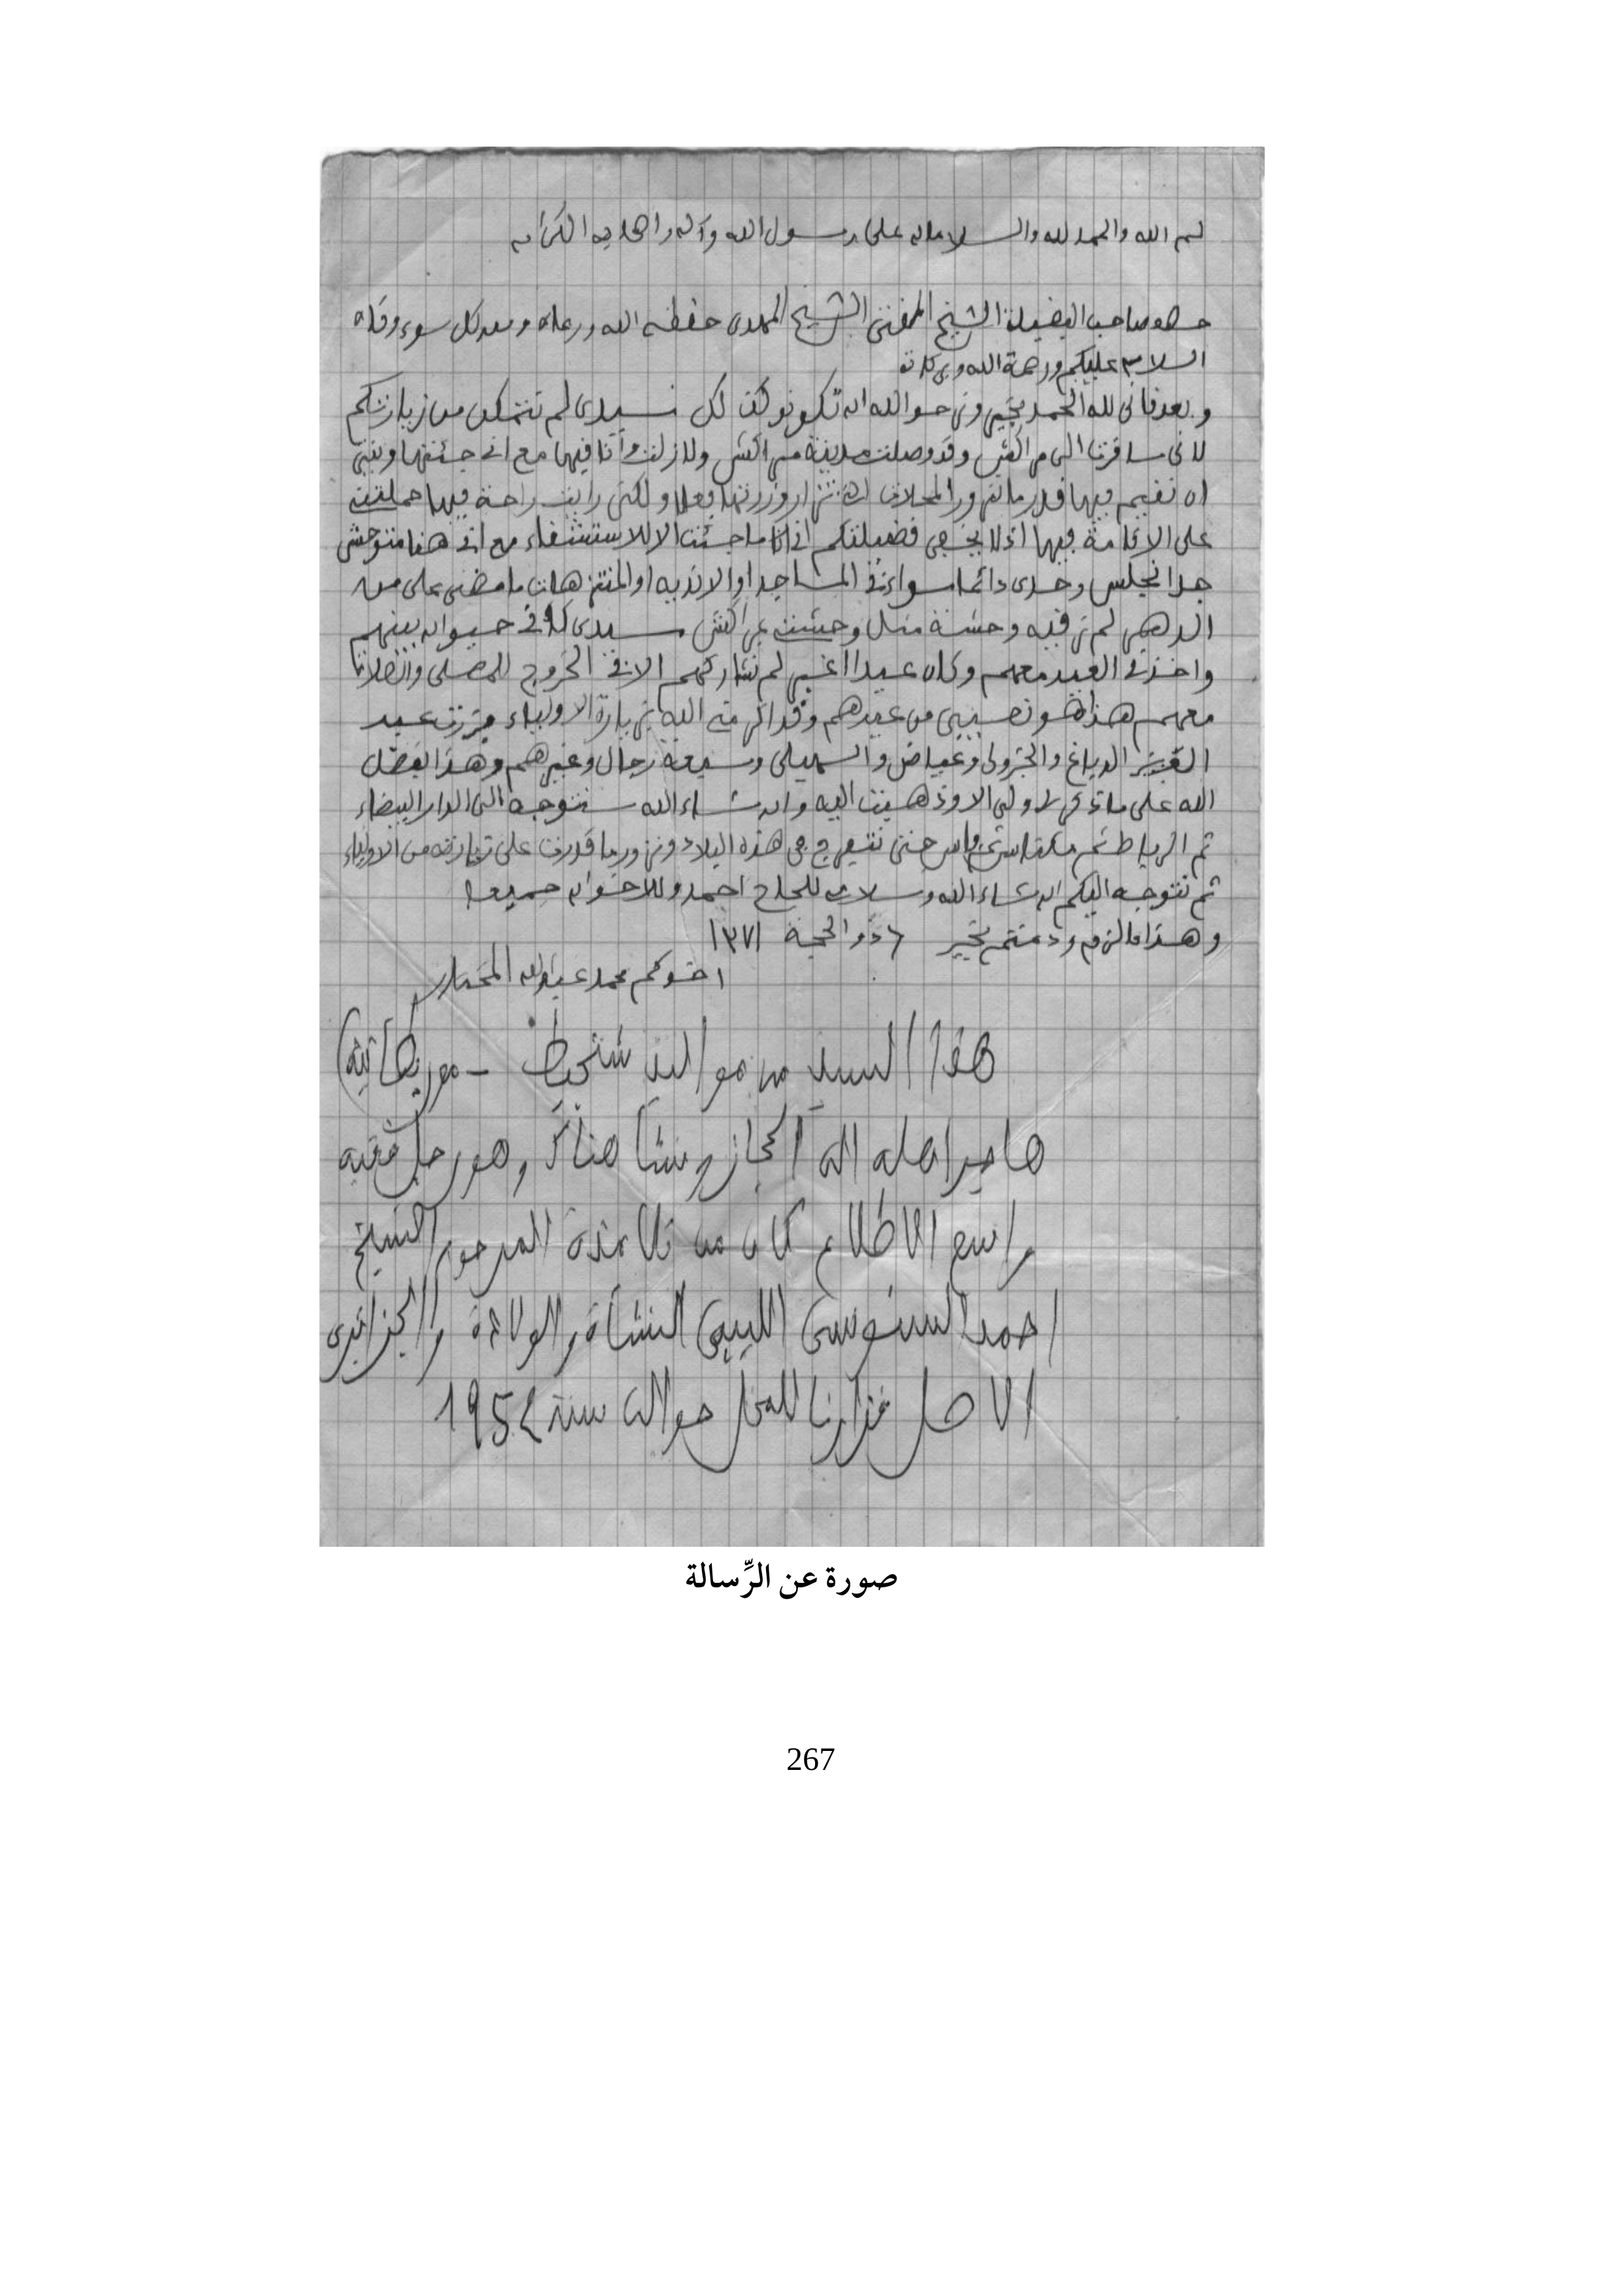 بسم الله والحمد لله والسلامان على رسول الله وآله واصحابه الكرام
حضره صاحب الفضيلة الشيخ المفتى الشيخ المهدى حفظه الله ورعاه ومن كل سوء وقاه
السلام عليكم ورحمة الله وبركاته
وبعد فانى لله الحمد بخير ونرجو الله ان تكونو كذلك سيدى لم نتمكن من زيارتكم
لانى سافرت الى مراكش وقد وصلت مدينة مراكش ولا زلت وأنا فيها مع انى جئتها ونيتى
ان نقيم فيها قدر ما نزور المحلات التى تزار وزرتها فعلا ولكنى رايت راحة فيها حملتنى
على الاقامة فيها اذ لا يخفى فضيلتكم انى انا ما جئت الا للاستشفاء مع انى هنا متوحش
جدا نجلس وحدى دائما سواء فى المساجد او الاندية او المنتزهات ما مضى على من
الدهر لم نر فيه وحشة مثل وحشت مراكش سيدى كانى حيوان بينهم
واخذنى العيد معهم وكان عيدا اغبر لم نشاركهم الا فى الخروج للمصلى والصلاة
معهم هذا هو نصيبى من عيدهم وقد اكرمنى الله بزيارة الاولياء فزرت عبد
العزيز الدباغ والجزولى وعياض والسهيلى وسبعة رجال وغيرهم وهذا بفضل
الله على ما ذكر لى ولى الا وذهبت اليه وان شاء الله سنتوجه الى الدار البيضاء
ثم الرباط ثم مكناس ثم فاس حتى نتفرج فى هذه البلاد ونزور ما قدرت على زيارته من الاولياء
ثم نتوجه اليكم ان شاء الله وسلامى للحاج احمد وللاخوان جميعا
وهذا ما لزم ودمتم بخير ٦ ذو الحجة ١٣٧١
اخوكم محمد عبد الله المختار
هذا السيد من مواليد شنجيط - موريطانية)
هاجر اهله الى الحجاز ونشأ هناك وهو رجل فقيه
واسع الاطلاع كان من تلامذة المرحوم الشيخ
احمد السنوسى الليبى النشأة والولادة والجزائرى
الاصل فزارنا للمحل حوالى سنة 1952
صورة عن الرِّسالة
267